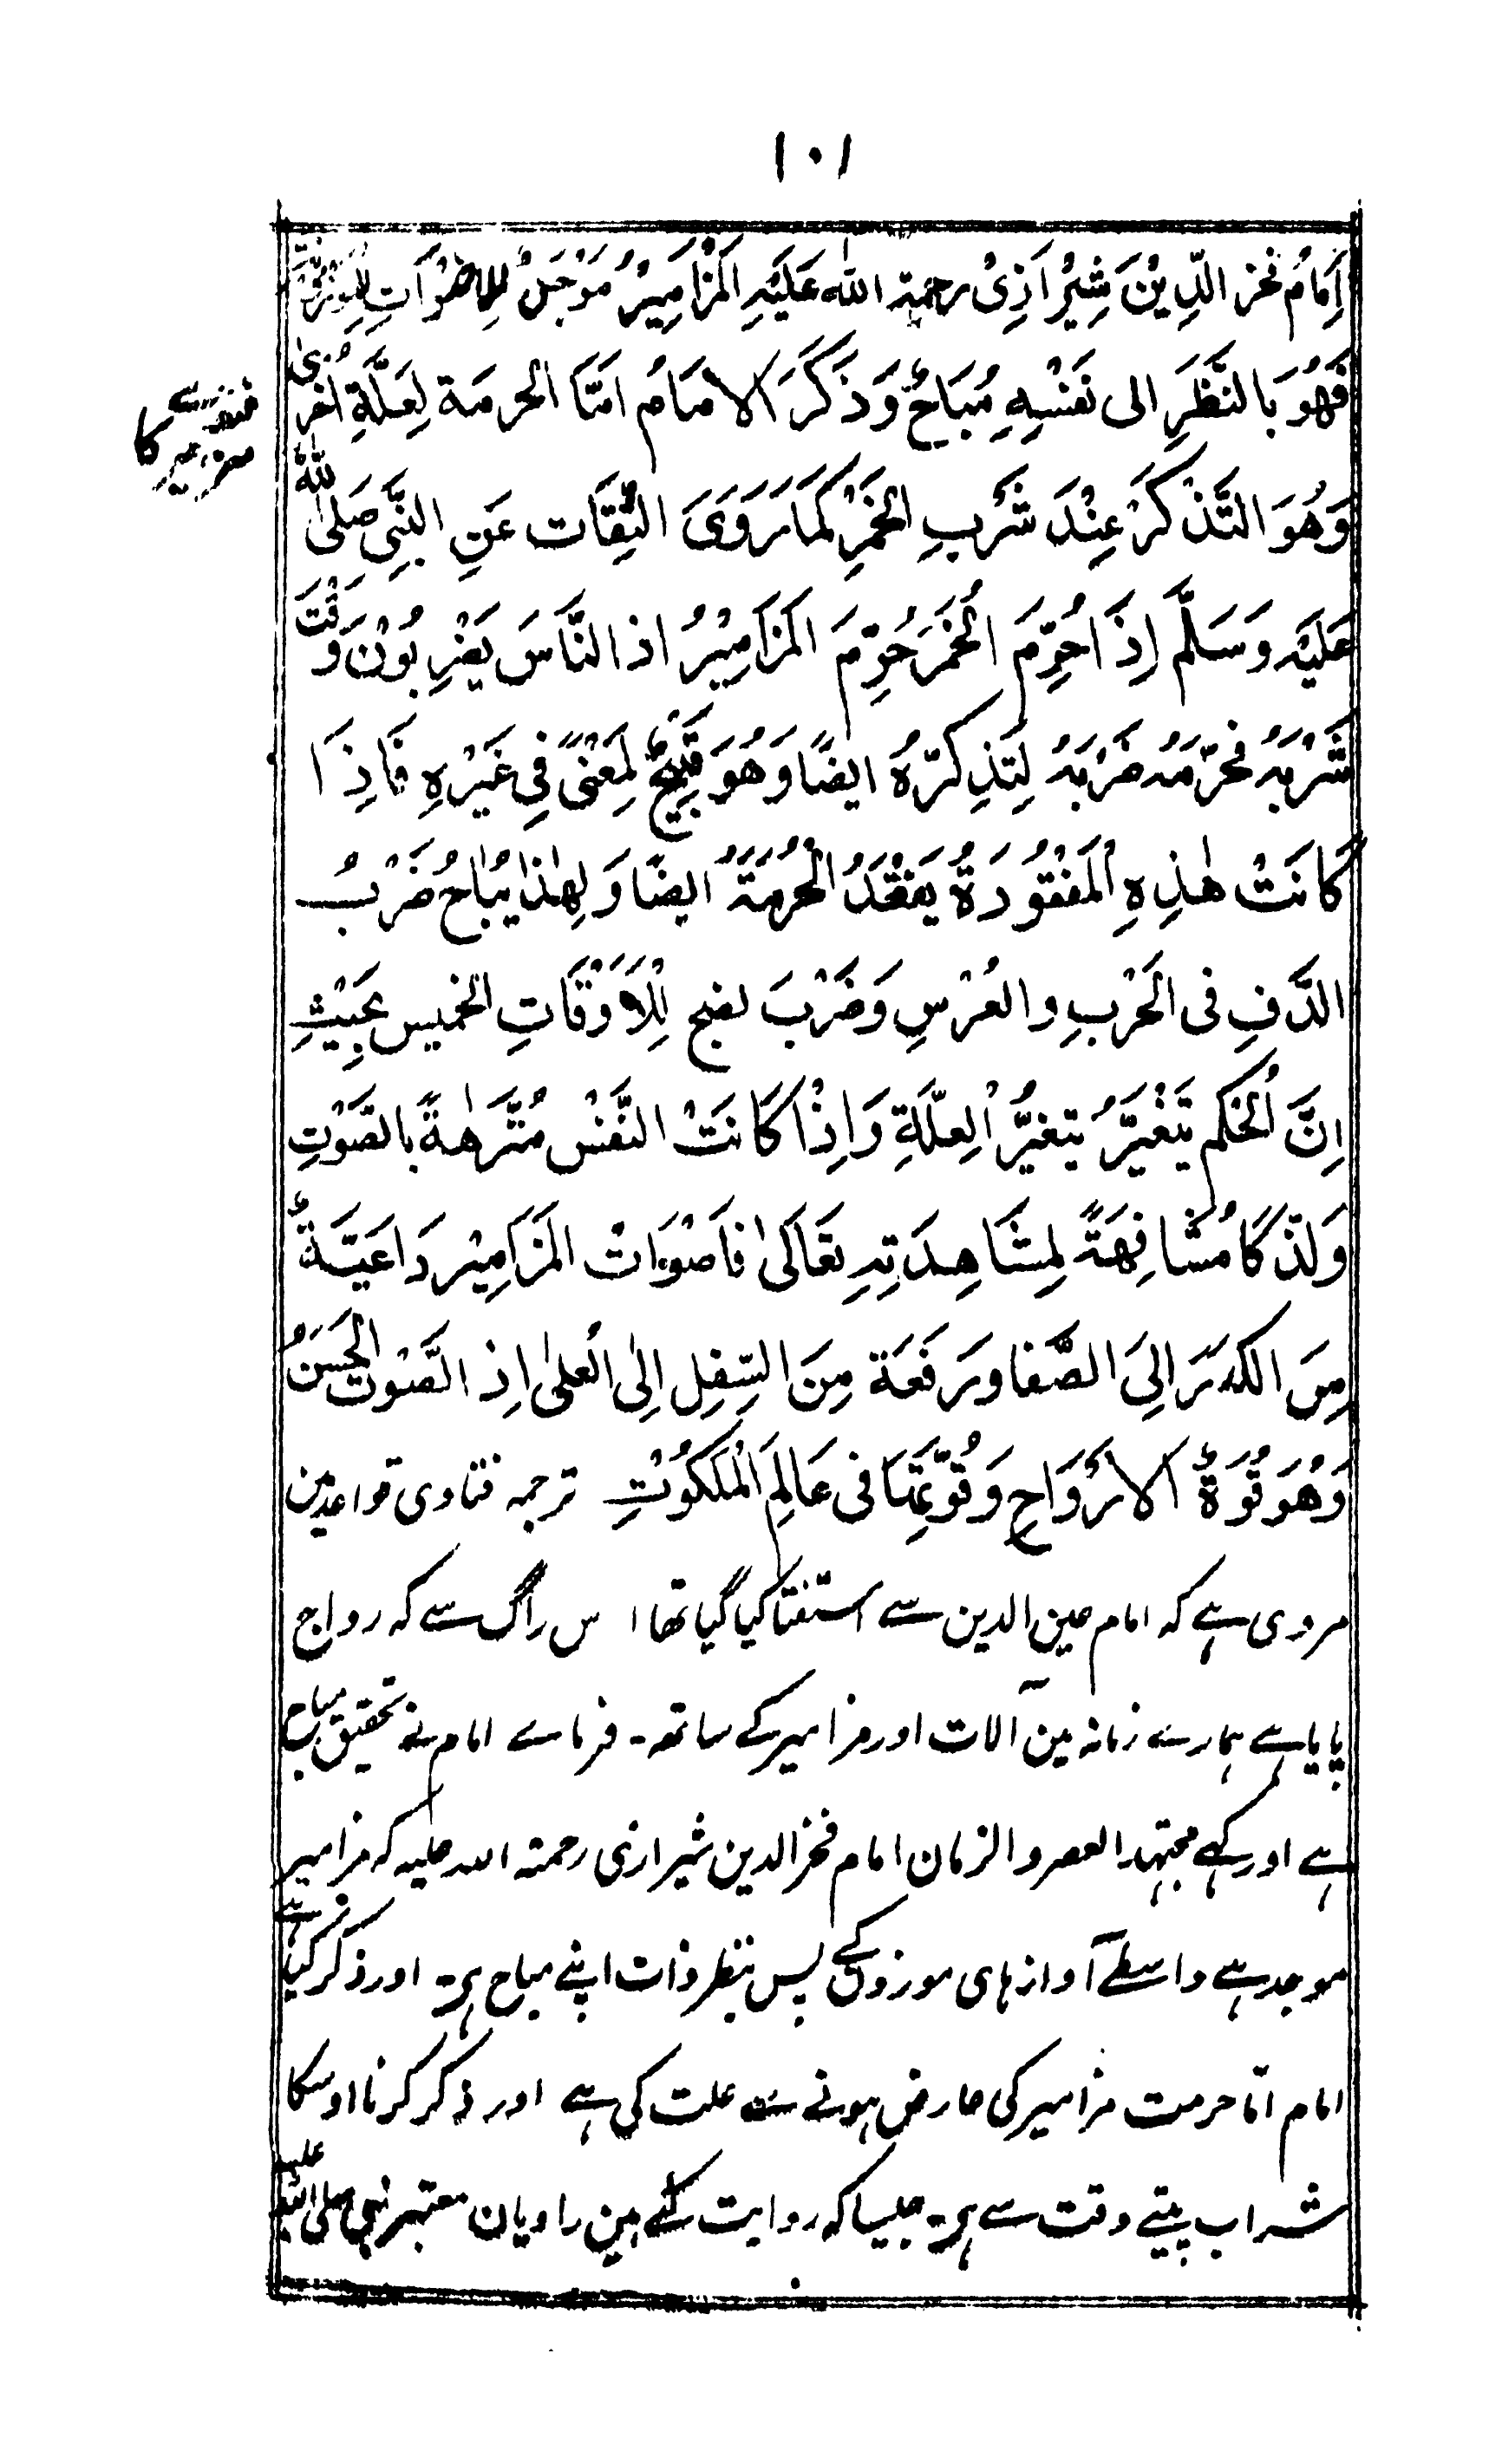 ١٠١
اِمَامُ فخر الدِّیْنَ شِیْرَازِیْ رحمۃ اللّٰہ عَلَیْہِ اَلْمَزَامِیْرُ مَوْجَلٌ لِلاصْوَاتِ
فَھُوَ بَالنَّظَرِ الی نَفْسِہِ مُبَاحٌ وَذَکَرَ الامَامُ امَّا الحرمَۃ لِعَلَّۃِ اُخریٰ
وَھُوَ التَّذْکَرْ عِنْدَ شَرْبِ الْخَمْرِ کَمَا رَوَیَ الثِّقَات عَنِ النَّبِّی صَلی اللّٰہُ
عَلَیْہ وَسَلَّمَ اِذَا حُرِّمَ الْخَمَرَ حُرِّمَ الْمَزَامِیْرُ اذ النَّاسَ یَضْرِبُوْنَ وَقْتَ
شَرْبَہُ فحَرَّمَہُ ضَرْبَہُ لِتَذِکرَّہُ ایضًا وَھُوَ قَبِیْحٌ لِمَعْنًی فِی غَیْرِہِ فَاذِا
کَانَتْ ھٰذِہِ الْمَفْقُوْدَۃُ یَفْقَدُ الْحُرْمَۃُ ایضًا وَلِھٰذَا یُبَاحُ ضَرْبُ
الدَّفِ فی الْحَرْبِ والعُرْسِ وَضَرْبَ لضج لِلْاَوْقَاتِ الخمیس بِحَیْثِ
اِنَّ الْحُکم یَتَغَیَّرُ بتغیُّرُ الْعِلَّۃِ وَاِذْا کَانَتْ النَّفْسْ مُنَزَّھَۃً بالصَّوْتِ
وَلذّکًا مُشَافِھَۃً لِمشَاھِدَتِہِ تَعَالَیٰ فَاَصْوَاتْ الْمَزَامِیْر دَاعَیَۃٌ
مِنَ الکدَرَ اِلیَ الصَّفَا وَرَفَعَۃ مِنَ السِّفِلِ اِلیٰ الْعلیٰ اِذ الصَّوْتُ الْحَسَنُ
وَھُوَ قُوَۃُ الاَرْوَاحِ وَقُوَّتِھَا فی عَالِمَ الْمَلَکُوْتِ ترجمہ فتاوی قواعد مین
مروی ہے کہ امام معین الدین سے استفتا کیا گیا تھا اس راگ سے کہ رواج
پایا ہے ہمارے زمانہ مین آلات اور مزامیر کے ساتھ۔ فرماے امام نے تحقیق مباح
ہے اور کہے مجتہد العصر والزمان امام فخر الدین شیرازی رحمتہ اللہ علیہ کہ مزامیر
موجد ہے واسطے آواز ہای موزوں کے پس بنظر ذات اپنے مباح ہی۔ اور ذکر کیا ہے
امام امّا حرمت مزامیر کی عارض ہونے سے علت کی ہے اور ذکر کرنا اوسکا
شراب پیتے وقت سے ہی۔ جیسا کہ روایت کئے ہین راویان معتبر نبی صلی اللہ علیہ
مزامیر کا